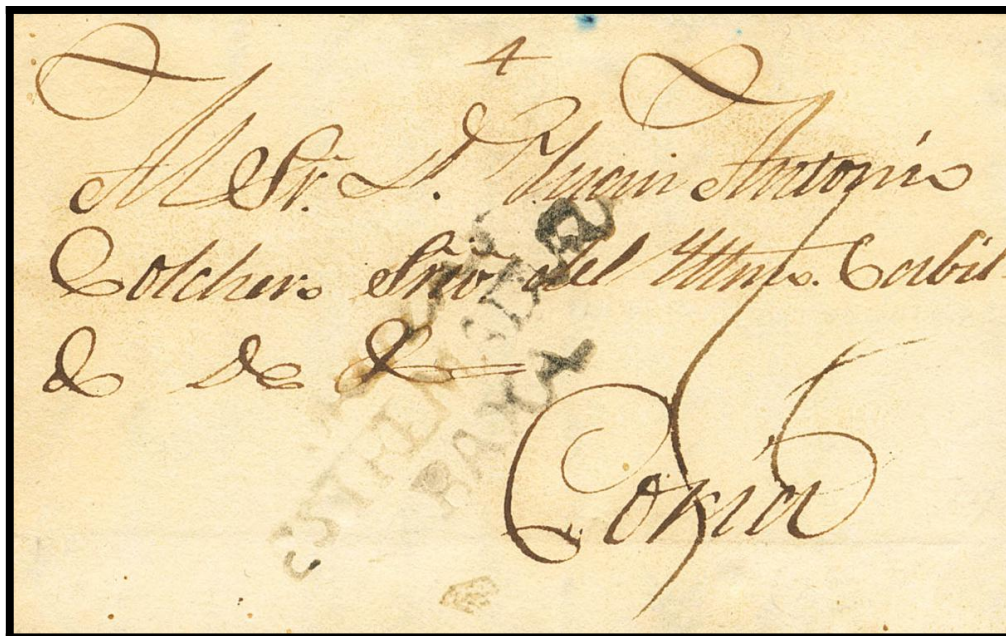 4
Al Sr. D. Juan Antonio
Colchero Srio. del Illmo. Cabil
& & &
Coria
ESTREMADURA
BAXA